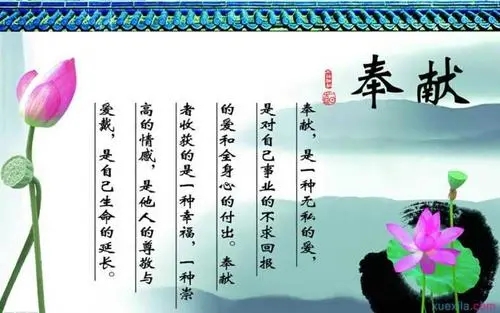 奉献
奉献，是一种无私的爱，
是对自己事业的不求回报
的爱和全身心的付出。奉献
者收获的是一种幸福，一种崇
高的情感，是他人的尊敬与
爱戴，是自己生命的延长。
xuexila.com